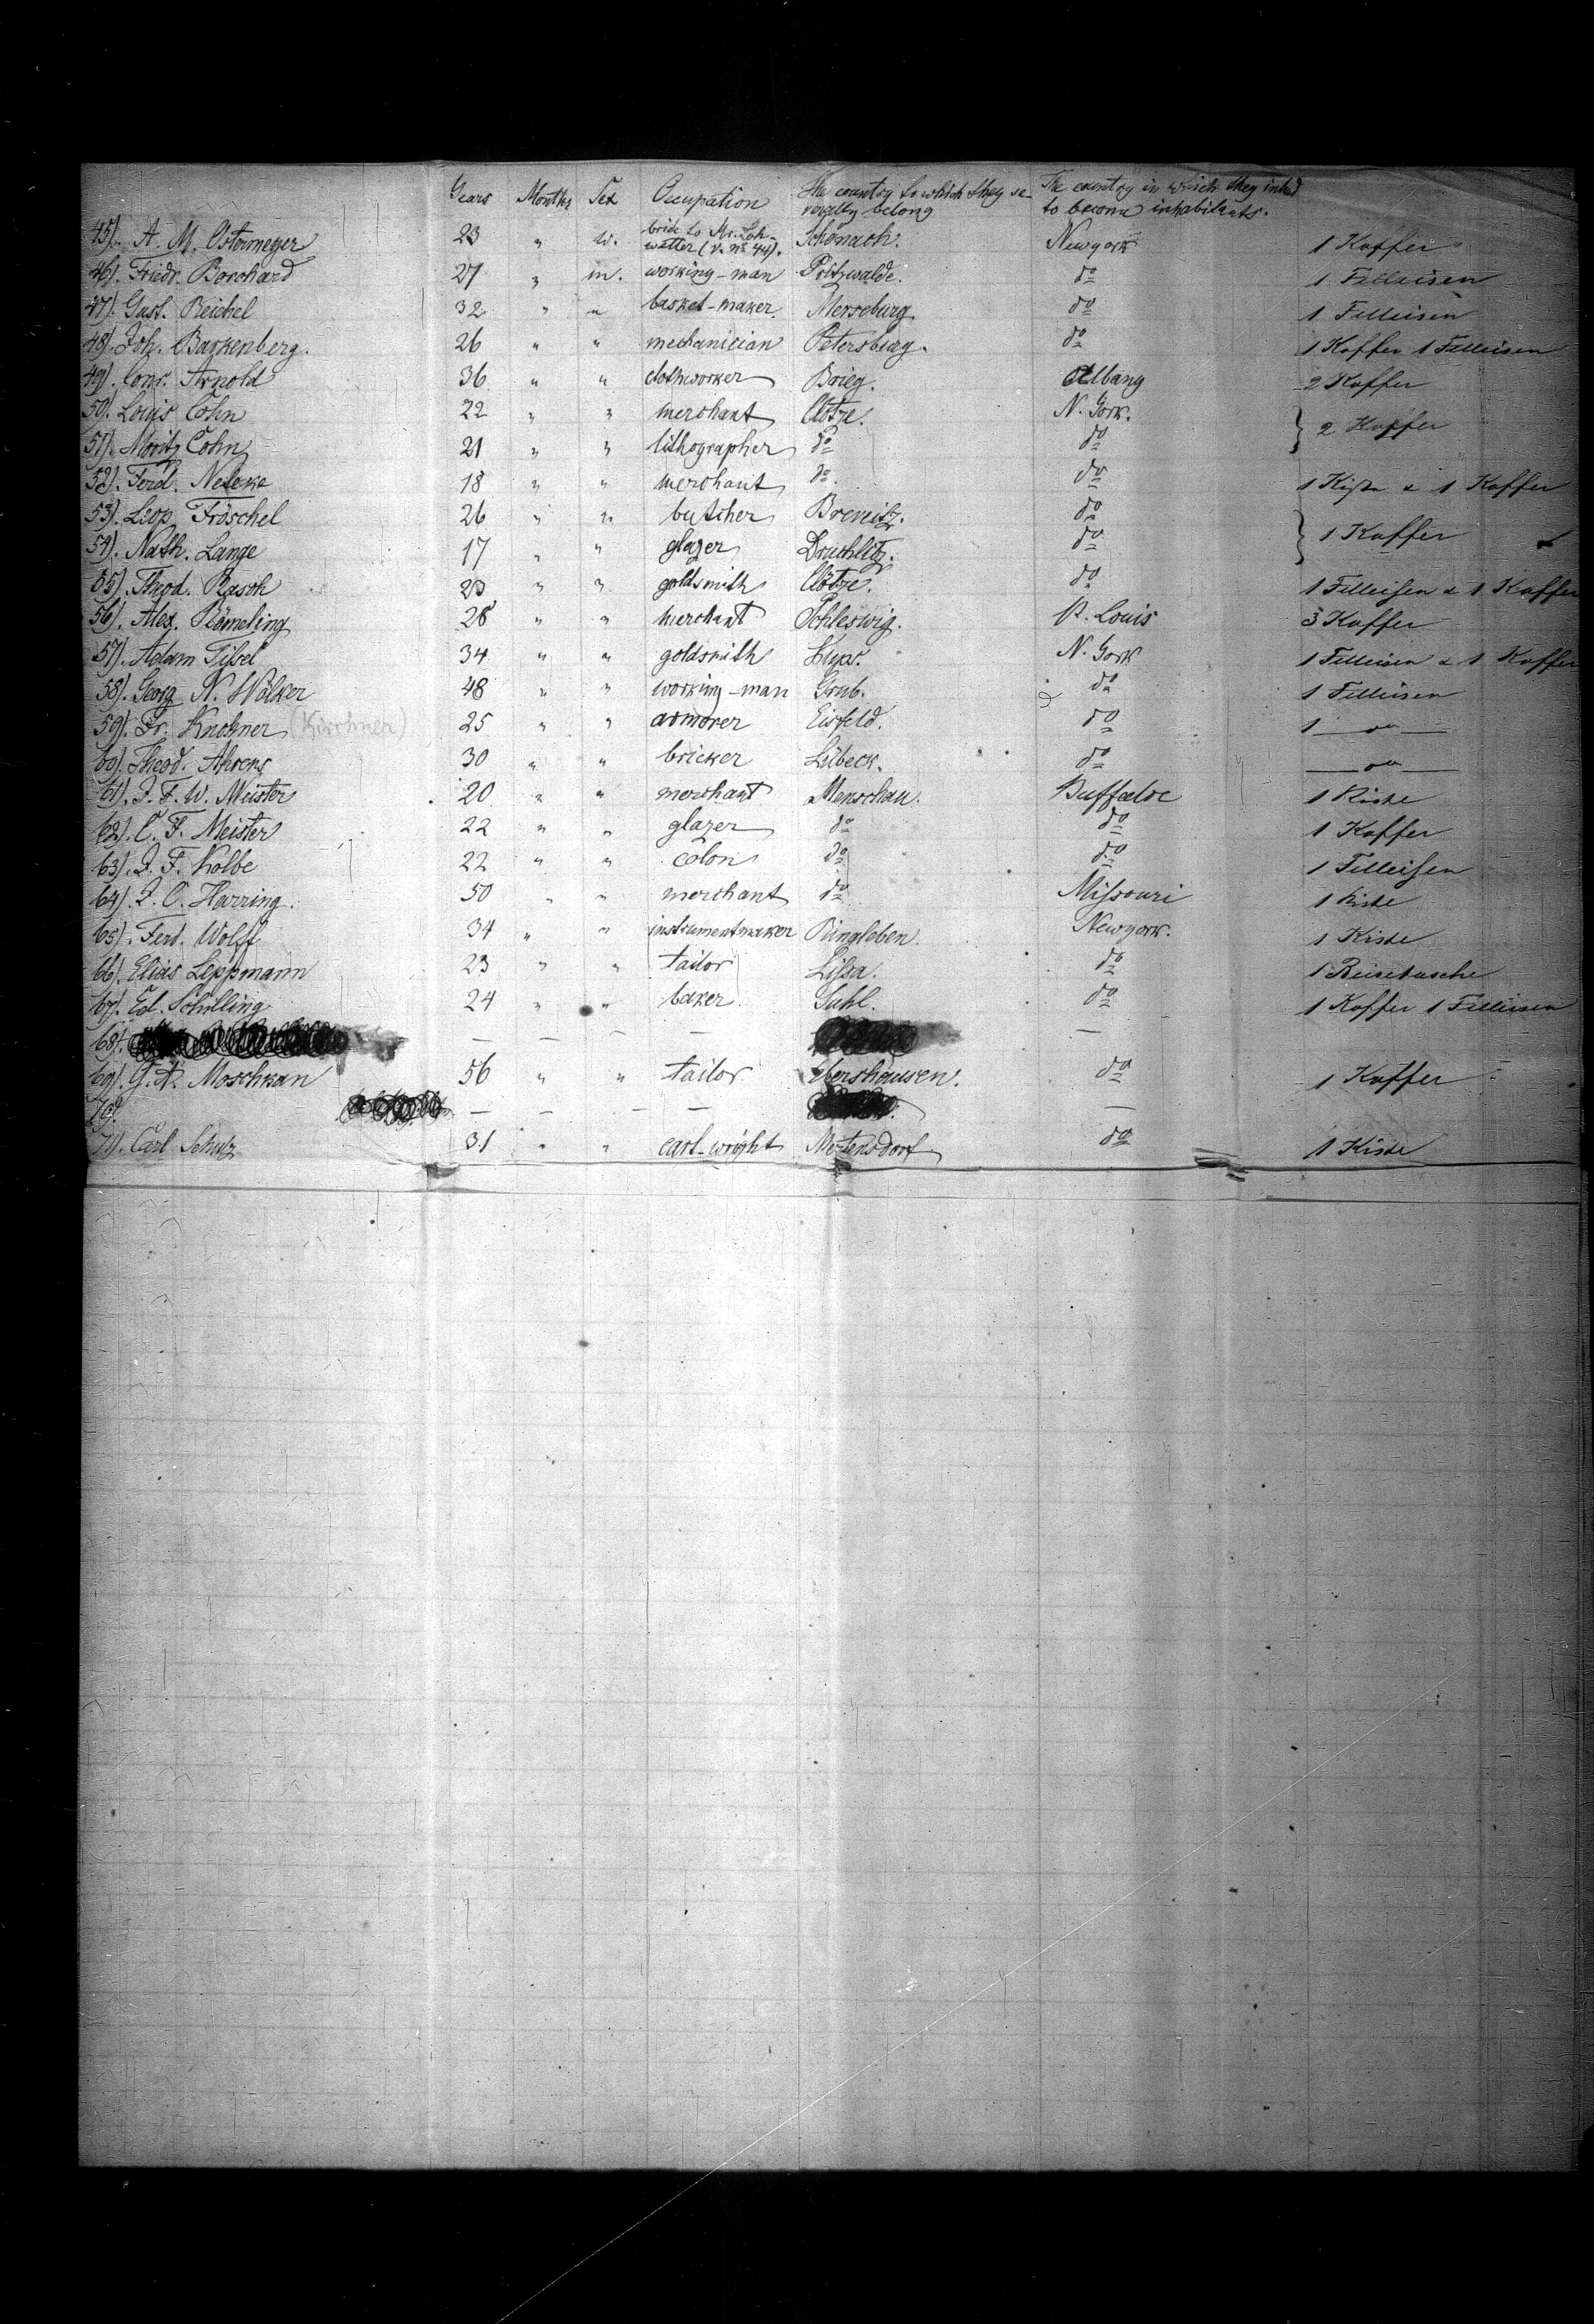 Years Months Sex Occupation The country to which they se- The country in which they intend
verally belong to become inhabitants.
45). A. M. Ostermeyer 23 " w. bride to Mr. Loh- Schönach. Newyork 1 Koffer
wetter (v. no 44).
46). Friedr. Borchard 27 " m. working-man Pritzwalde. do 1 Felleisen
47). Gust. Reichel 32 " " basket-maker. Merseburg. do 1 Felleisen
48). Joh. Barkenberg. 26 " " mechanician Petersburg. do 1 Koffer 1 Felleisen
49). Conr. Arnold 36 " " clothworker Brieg. Albany 2 Koffer
50). Louis Cohn 22 " " merchant Clötze. N. York. 2 Koffer
51). Moritz Cohn 21 " " lithographer do do
52). Ferd. Neteke 18 " " merchant do. do 1 Kiste & 1 Koffer
53). Leop. Fröschel 26 " " butcher Bremitz. do 1 Koffer
54). Nath. Lange 17 " " glazer Druchlitz. do
55). Theod. Rasch 23 " " goldsmith Clötze. do 1 Felleisen & 1 Koffer
56). Alex. Römeling 28 " " merchant Schleswig. St. Louis 3 Koffer
57). Adam Tissel 34 " " goldsmith N. York 1 Felleisen & 1 Koffer
58). Georg N. Wölker 48 " " working-man Grub. do 1 Felleisen
59). Fr. Knohner (Kirchner) 25 " " armorer Eisfeld. do 1 — do —
60). Theod. Ahrens 30 " " bricker Lübeck. do — do —
61). J. F. W. Meister 20 " " merchant Menschau. Buffaloe 1 Kiste
62). C. F. Meister 22 " " glazer do do 1 Koffer
63). J. F. Kolbe 22 " " colon do do 1 Felleisen
64). J. C. Harring. 50 " " merchant do Missouri 1 Kiste
65). Ferd. Wolff 34 " " instrumentmaker Ringleben. Newyork. 1 Kiste
66). Elias Leppmann 23 " " tailor Lissa. do 1 Reisetasche
67). Ed. Schilling 24 " " baker Suhl. do 1 Koffer 1 Felleisen
68). — — — — —
69). G. A. Moschkan 56 " " tailor Ebershausen. do 1 Koffer
70). — — — — —
71). Carl Schulz 31 " " cart-wright Mertensdorf do 1 Kiste